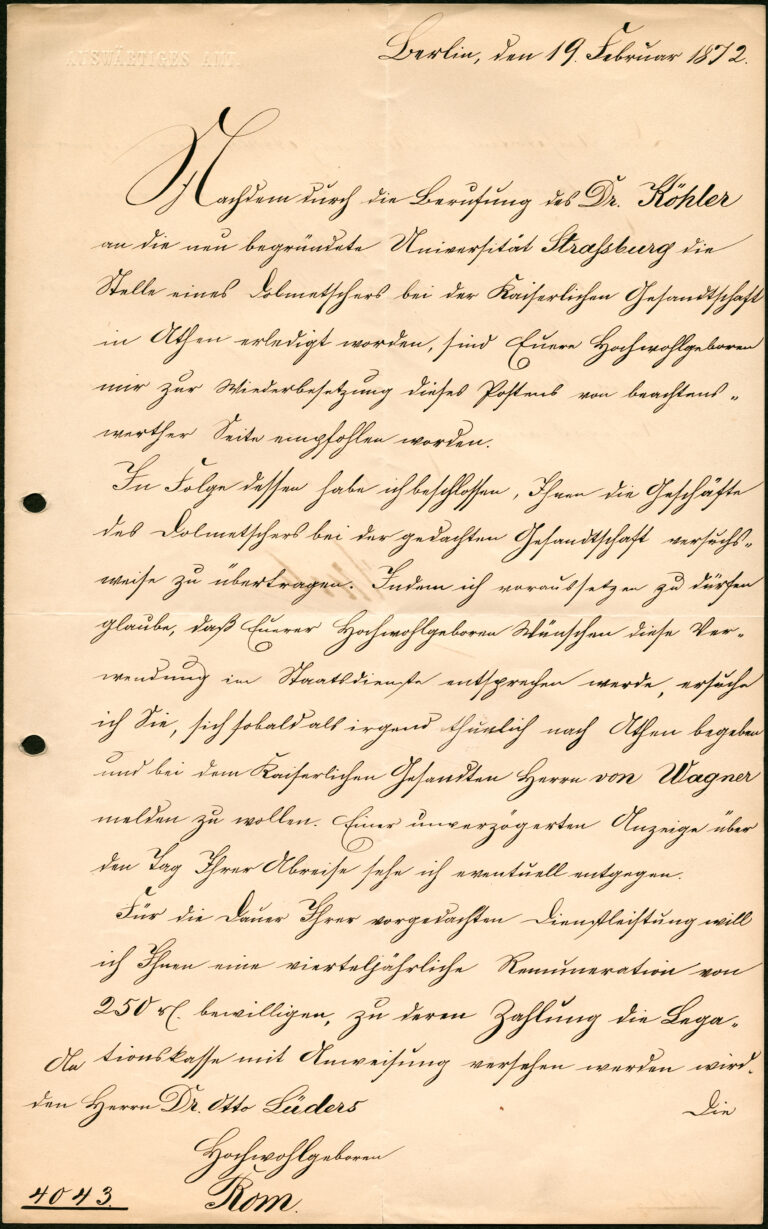 AUSWÄRTIGES AMT.
Berlin, den 19. Februar 1872.
Nachdem durch die Berufung des Dr. Köhler
an die neu begründete Universität Straßburg die
Stelle eines Dolmetschers bei der Kaiserlichen Gesandtschaft
in Athen erledigt worden, sind Euere Hochwohlgeboren
mir zur Wiederbesetzung dieses Postens von beachtens-
werther Seite empfohlen worden.
In Folge dessen habe ich beschlossen, Ihnen die Geschäfte
des Dolmetschers bei der gedachten Gesandtschaft versuchs-
weise zu übertragen. Indem ich voraussetzen zu dürfen
glaube, daß Euerer Hochwohlgeboren Wünschen diese Ver-
wendung im Staatsdienste entsprechen werde, ersuche
ich Sie, sich sobald als irgend thunlich nach Athen begeben
und bei dem Kaiserlichen Gesandten Herrn von Wagner
melden zu wollen. Einer unverzögerten Anzeige über
den Tag Ihrer Abreise sehe ich eventuell entgegen.
Für die Dauer Ihrer vorgedachten Dienstleistung will
ich Ihnen eine vierteljährliche Remuneration von
250 rl. bewilligen, zu deren Zahlung die Lega-
tionskasse mit Anweisung versehen werden wird.
Die
An
den Herrn Dr. Otto Lüders
Hochwohlgeboren
Rom.
4043.